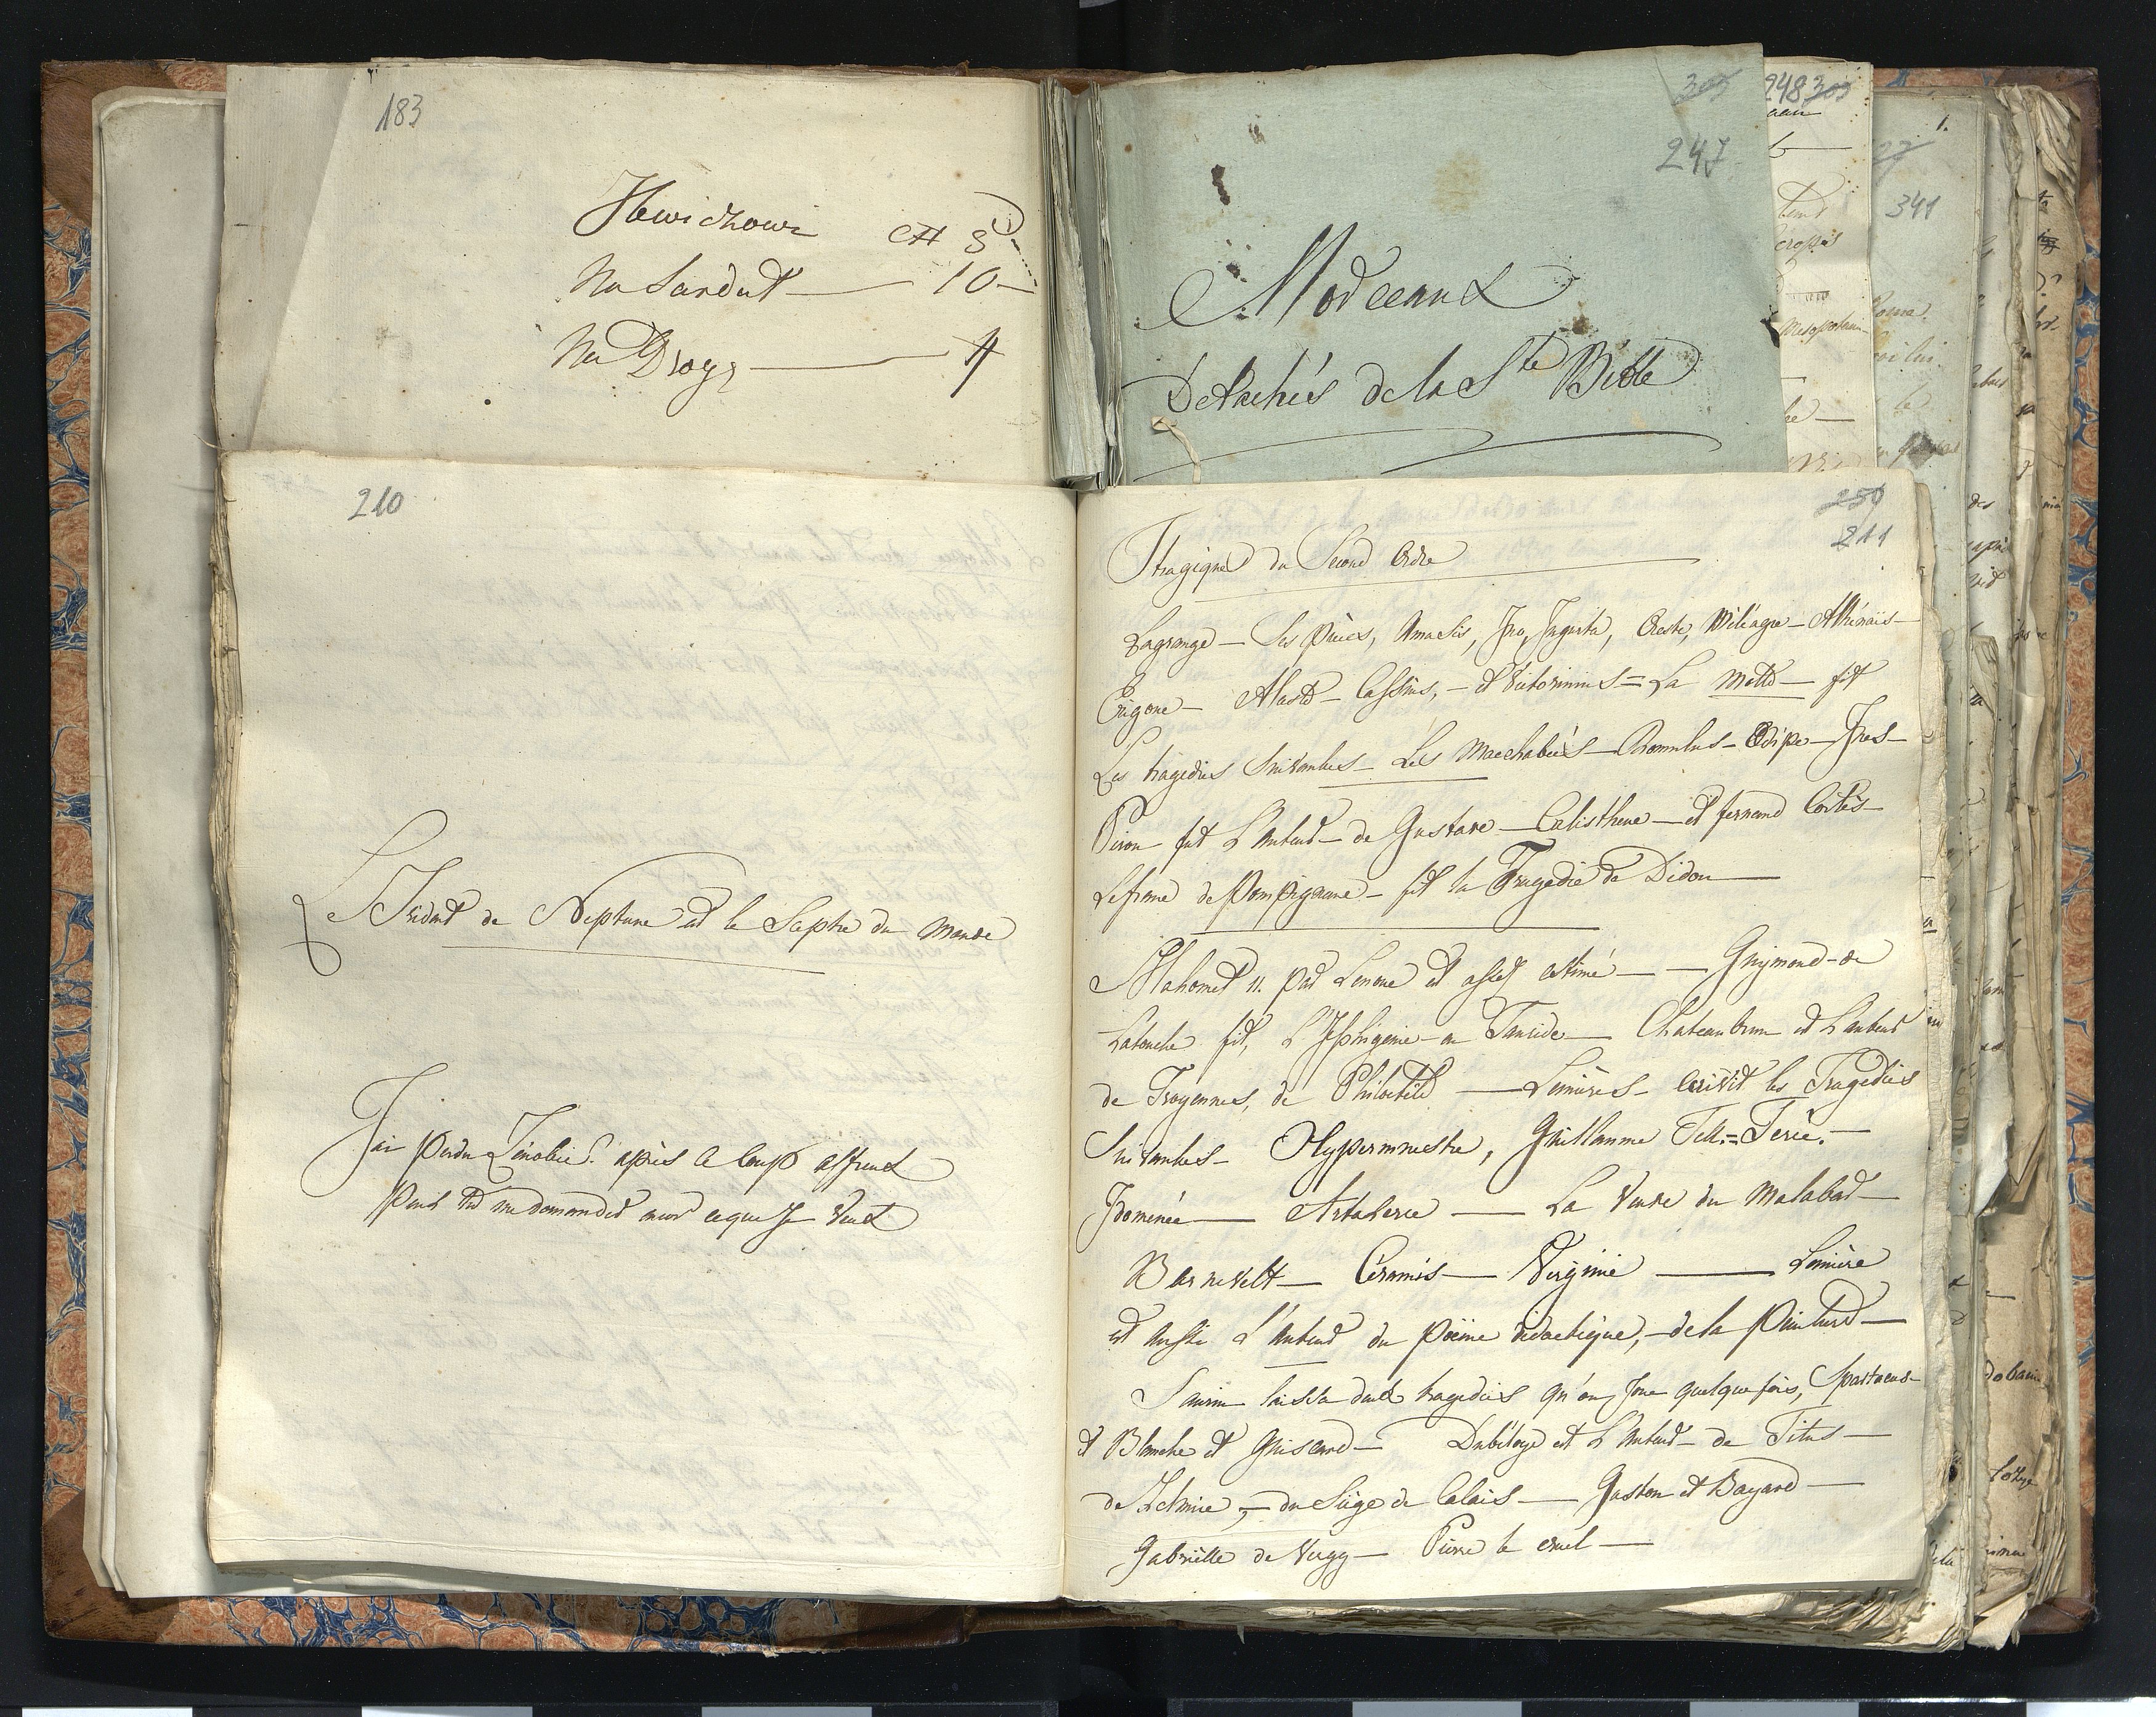 183
Na Sandał — 10 —
Na Drogę — 4
305
247
Morceaux
Detachés de la Ste Bible
248 305
341
210
Le Tridant de Neptune est le Sceptre du Monde
J'ai perdu Zénobie. après ce coup affreux
peux tu me demander encor ce que Je veux
211
Tragiques du Second Ordre
Lagrange — Ses pièces, Amasis, Ino, Jugurta, Oreste, Méléagre — Athénaïs —
Erigone — Alceste — Cassius, — et Victorinus = La Motte — fit
Les tragedies Suivantes — Les Macchabées — Romulus — Œdipe — Ines —
Piron fut L'Auteur — de Gustave — Calisthene — et fernand Cortès —
Lefranc de Pompignane — fit la Tragedie de Didon —
Mahomet II. par Lanoue est assez estimé — — Guymond — de
Latouche fit, L'Iphigenie — en Tauride — Chateaubrun est L'auteur
de Troyennes, de Philoctete — Lemieres — écrivit les Tragedies
Suivantes — Hypermnestre, Guillaume Tell. = Terée. —
Idoménée — Artaxerce — La Veuve du Malabar —
Barnevelt — Céramis — Virginie — Lemière
est aussi L'Auteur du poëme didactique, — de la Peinture —
Saurin laissa deux tragedies qu'on Joue quelque fois, Spartacus —
et Blanche et Guiscard — Dubéloye est L'Auteur — de Titus —
de Zelmire, — du Siége de Calais — Gaston et Bayard —
Gabriëlle de Vergy — Pierre le cruel —